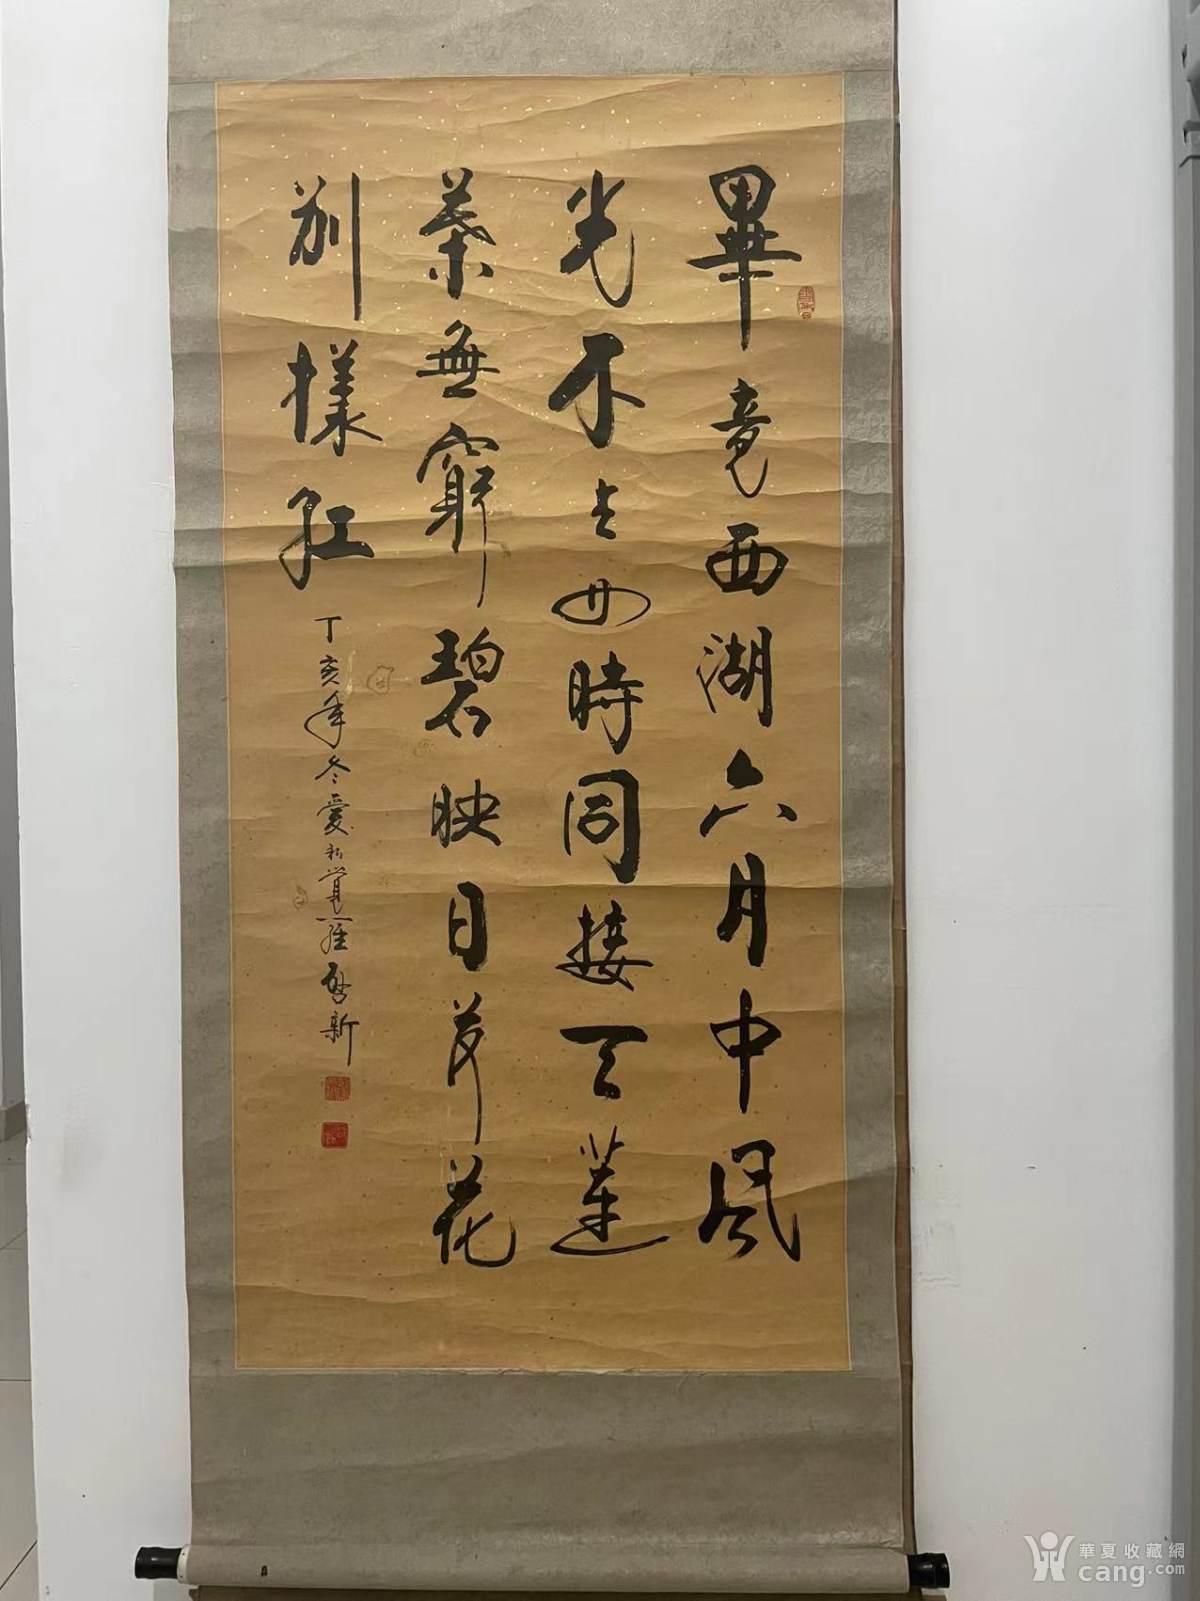 畢竟西湖六月中風
光不与四時同接天蓮
葉無窮碧映日荷花
別樣紅
丁亥年冬愛新覺羅啟新
華夏收藏網
cang.com